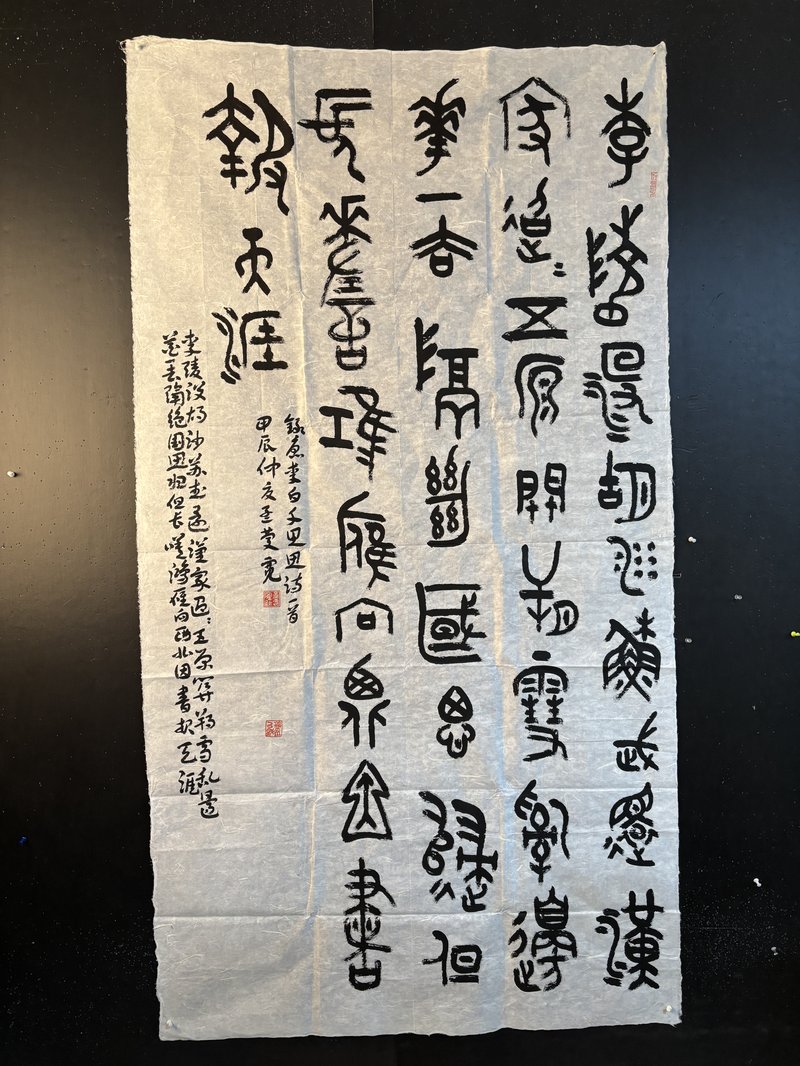 李陵没胡沙蘇武還漢
家迢:五原關朔雪亂邊
華一去隔絕國思歸但
長嗟鴻雁向西北因書
報天涯
錄唐李白千里思诗一首
甲辰仲夏
李陵没胡沙苏武還漢家迢:五原関朔雪乱邊
花一去隔绝国思归但长嗟鸿雁向西北因書报天涯